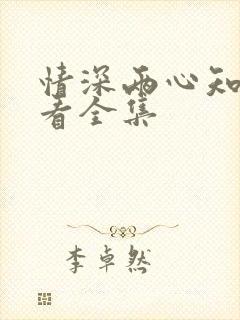 情深两心知
者全集
李卓然